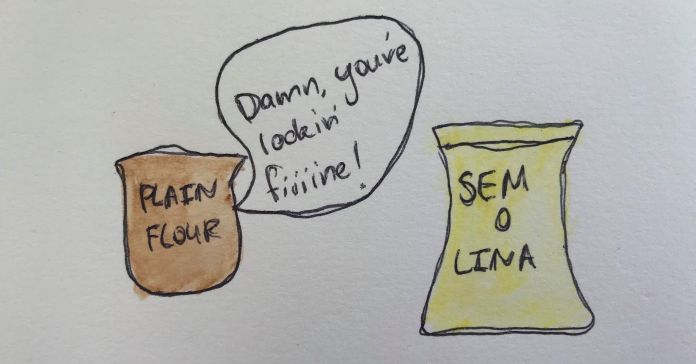 Damn, you're
lookin'
fiiiine!
PLAIN
FLOUR
SEM
O
LINA